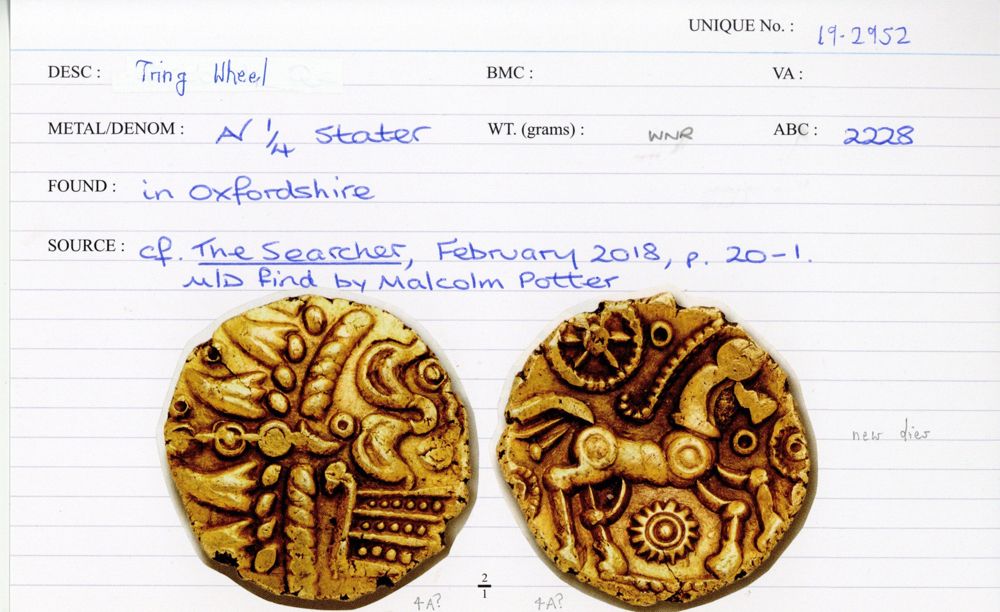 UNIQUE No. : 19-2952
DESC : Tring Wheel BMC : VA :
METAL/DENOM : AV 1/4 Stater WT. (grams) : WNR ABC : 2228
FOUND : in Oxfordshire
SOURCE : cf. The Searcher, February 2018, p. 20-1.
M/D find by Malcolm Potter
new dies
2/1
4A? 4A?